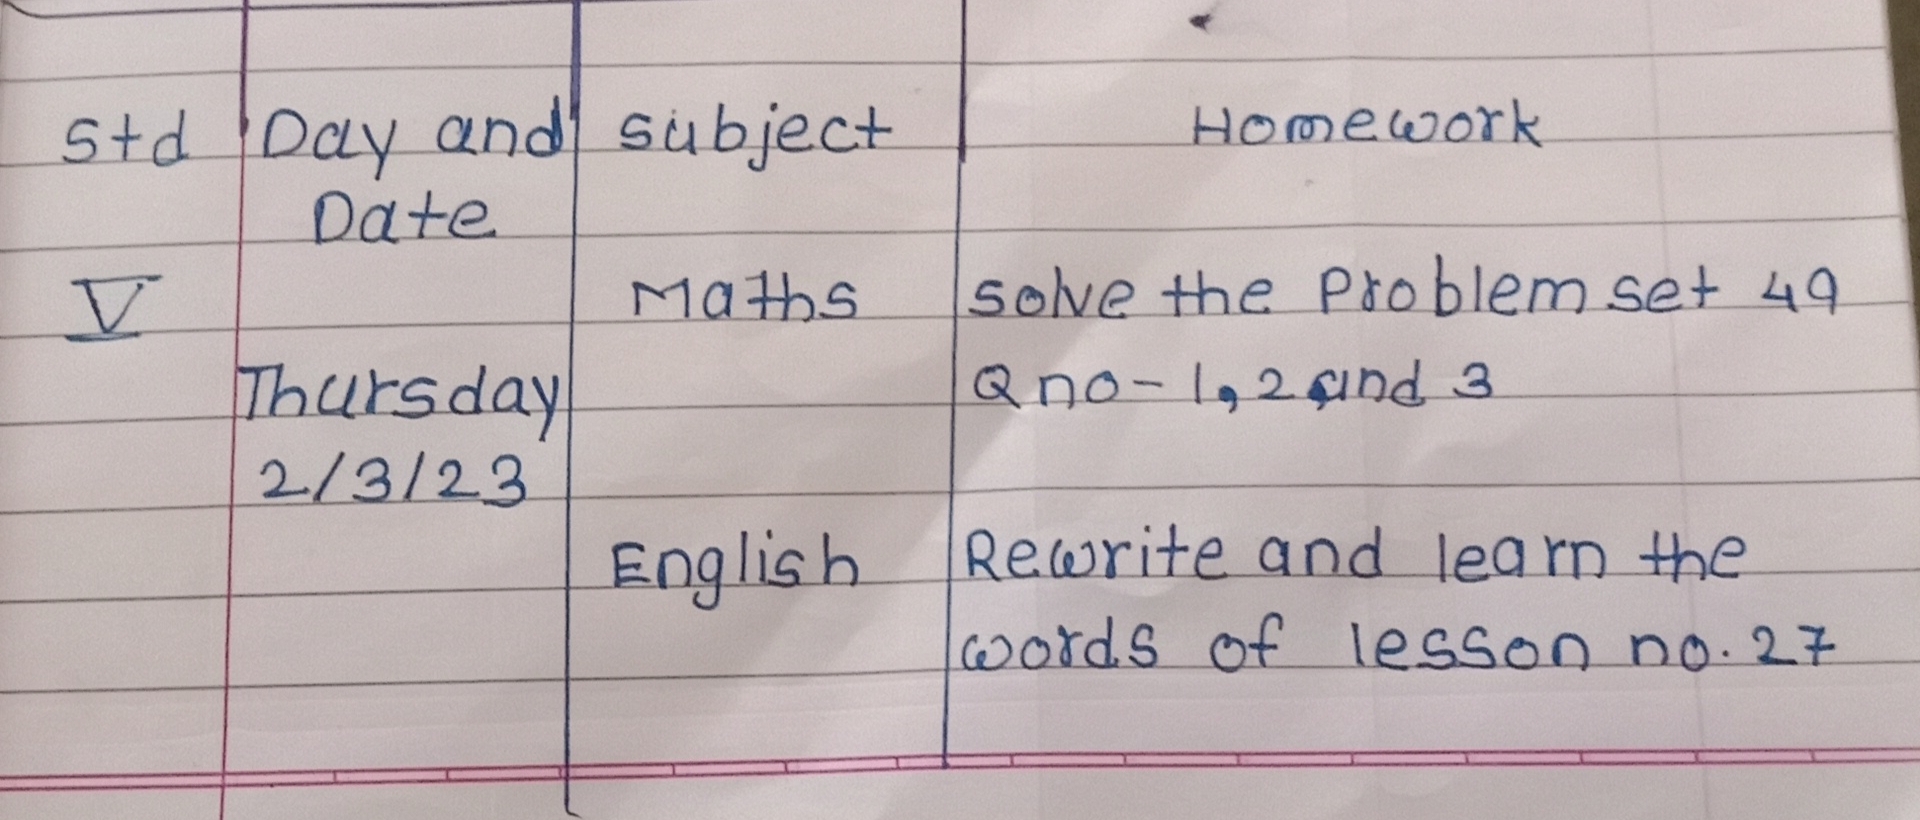 Std Day and subject Homework
Date
V Maths solve the Problem set 49
Thursday Q no - 1, 2 and 3
2/3/23
English Rewrite and learn the
words of lesson no. 27